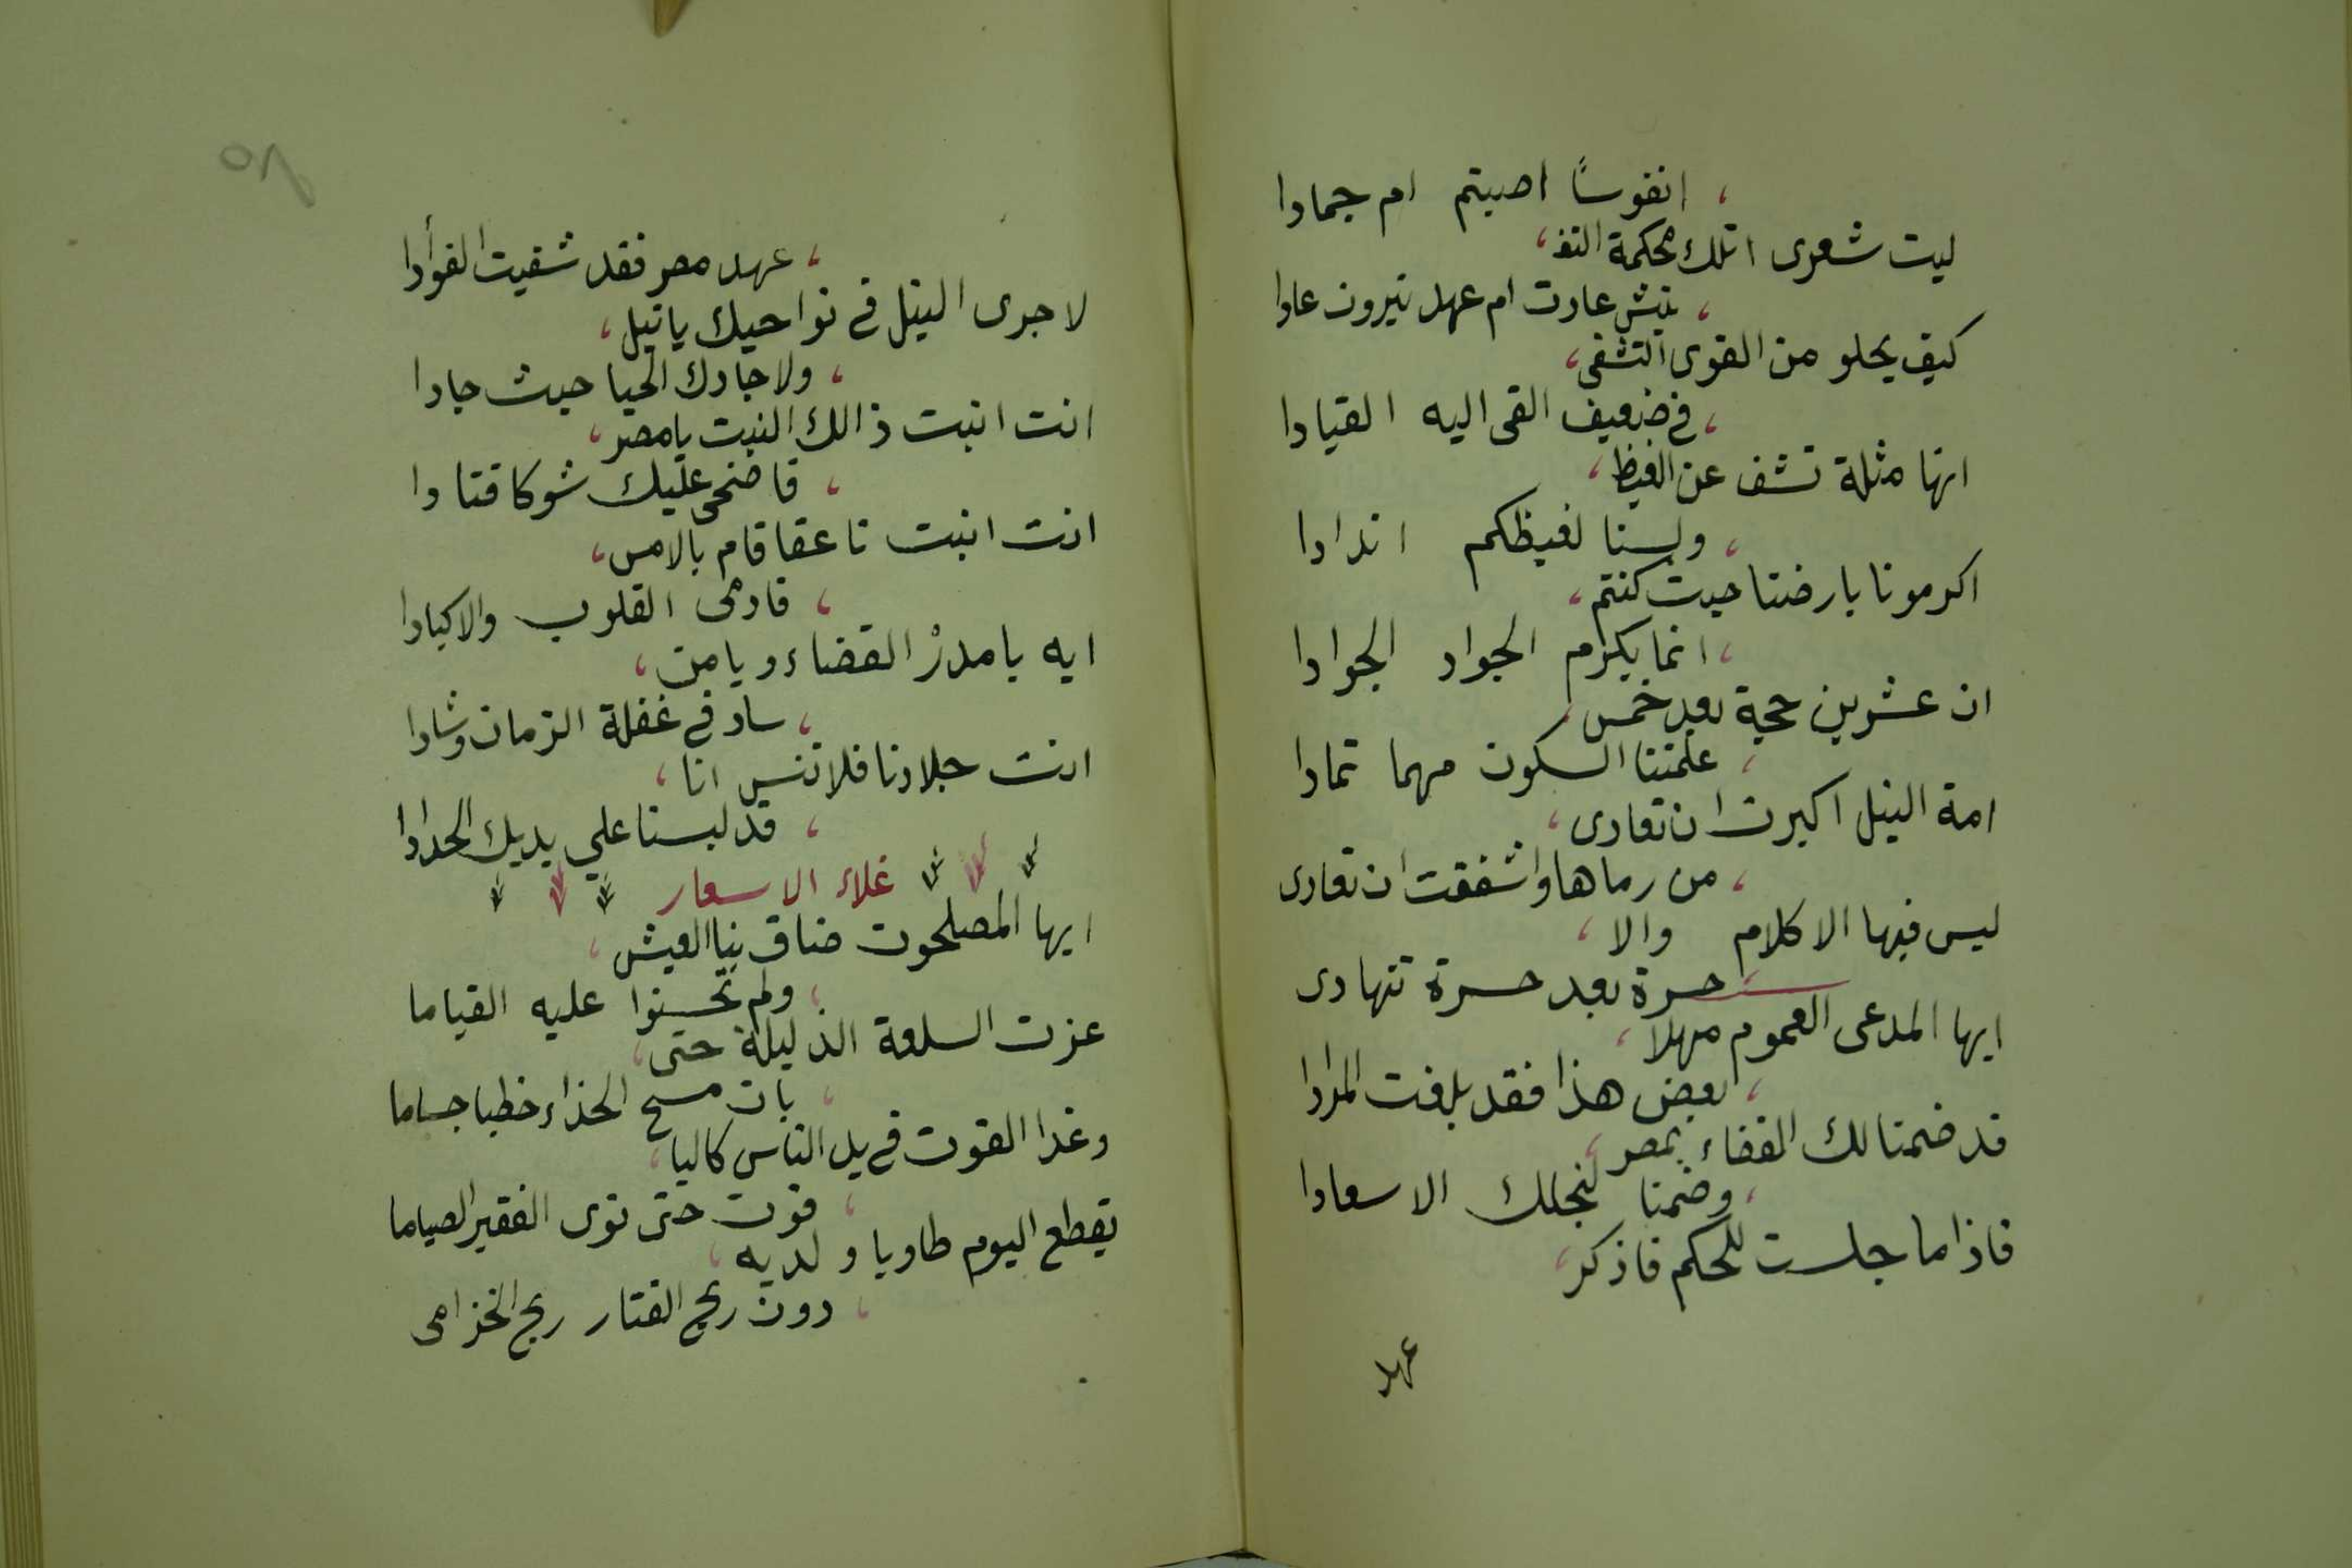 ، انفوسًا اصبتم ام جمادا
ليت شعرى اتلك محكمة التفـ ،
، تيش عادت ام عهد نيرون عادا
كيف يحلو من القوى التشفى ،
، فى ضعيف القى اليه القيادا
انها مثلة تشف عن الغيظ ،
، ولسنا لغيظكم اندادا
اكرمونا بارضنا حيث كنتم ،
، انما يكرم الجواد الجوادا
ان عشرين حجة بعد خمس ،
، علمتنا السكون مهما تمادا
امة النيل اكبرت ان تعادى ،
، من رماها واشفقت ان تعادى
ليس فيها الا كلام والا ،
، حسرة بعد حسرة تتهادى
ايها المدعى العموم مهلا ،
، بعض هذا فقد بلغت المرادا
قد ضمنا لك القضاء بمصر ،
، وضمنا لنجلك الاسعادا
فاذا ما جلست للحكم فاذكر ،
عهد
٨٥
، عهد مصر فقد شفيت الفوأدا
لا جرى النيل فى نواحيك يا نيل ،
، ولا جادك الحيا حيث جادا
انت انبت ذالك النبت يا مصر ،
، فاضحى عليك شوكا قتادا
انت انبت ناعقا قام بالامس ،
، فادمى القلوب والاكبادا
ايه يا مدرْ القضاء ويا من ،
، ساد فى غفلة الزمان وشادا
انت جلادنا فلا تنس انا ،
، قد لبسنا علي يديك الحدادا
غلاء الاسعار
ايها المصلحون ضاق بنا العيش ،
، ولم تحسنوا عليه القياما
عزت السلعة الذليلة حتى ،
، بات مسح الحذاء خطبا جساما
وغدا القوت فى يد الناس كاليا ،
، قوت حتى نوى الفقير الصياما
يقطع اليوم طاويا ولديه ،
، دون ريح القتار ريح الخزامى